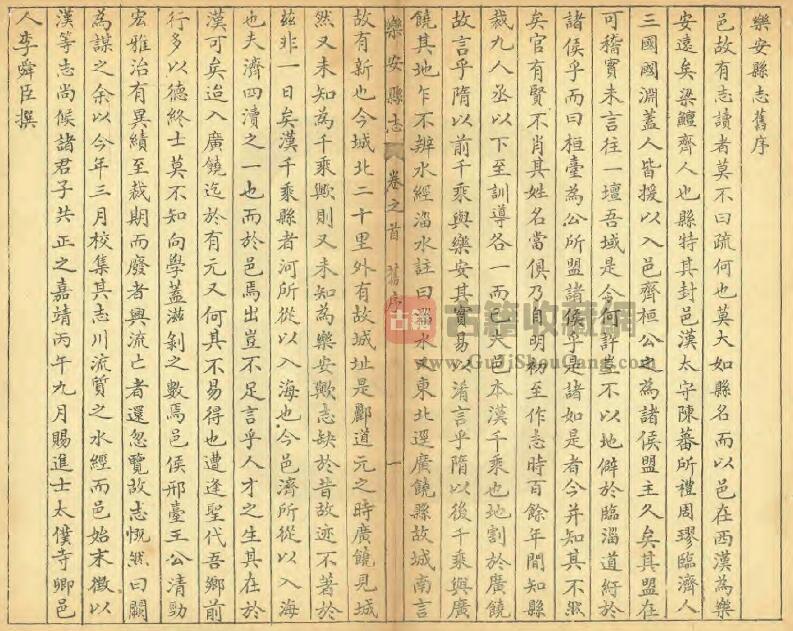 樂安縣志舊序
邑故有志讀者莫不曰疏何也莫大如縣名而以邑在西漢為樂
安遠矣梁鱣齊人也縣特其封邑漢太守陳蕃所禮周璆臨濟人
三國國淵蓋人皆援以入邑齊桓公之為諸侯盟主久矣其盟在
可稽實未言往一壇吾域是今何許豈不以地僻於臨淄道紆於
諸侯乎而曰桓臺為公所盟諸侯乎是諸如是者今并知其不然
矣官有賢不肖其姓名當俱乃自明初至作志時百餘年間知縣
裁九人丞以下至訓導各一而已夫邑本漢千乘也地割於廣饒
故言乎隋以前千乘與樂安其實易以淆言乎隋以後千乘與廣
饒其地乍不辨水經淄水註曰淄水又東北逕廣饒縣故城南言
樂安縣志 卷之首 舊序 一
故有新也今城北二十里外有故城址是酈道元之時廣饒見城
然又未知為千乘歟則又未知為樂安歟志缺於昔故迹不著於
茲非一日矣漢千乘縣者河所從以入海也今邑濟所從以入海
也夫濟四瀆之一也而於邑焉出豈不足言乎人才之生其在於
漢可矣迨入廣饒迄於有元又何其不易得也遭逢聖代吾鄉前
行多以德終士莫不知向學蓋滋剝之數焉邑侯邢臺王公清勁
宏雅治有異績至裁期而廢者興流亡者還忽覽故志慨然曰闕
為謀之余以今年三月校集其志川流質之水經而邑始末徵以
漢等志尚候諸君子共正之嘉靖丙午九月賜進士太僕寺卿邑
人李舜臣撰
古籍
古籍收藏網
www.GuJiShouCang.com